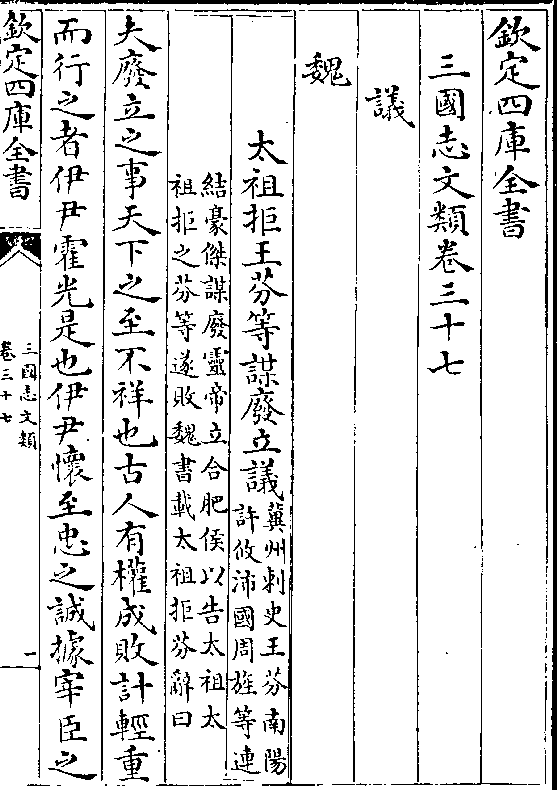 欽定四庫全書
三國志文類卷三十七
議
魏
太祖拒王芬等謀廢立議
冀州刺史王芬南陽
許攸沛國周旌等連
結豪傑謀廢靈帝立合肥侯以告太祖太
祖拒之芬等遂敗魏書載太祖拒芬辭曰
夫廢立之事天下之至不祥也古人有權成敗計輕重
而行之者伊尹霍光是也伊尹懷至忠之誠據宰臣之
欽定四庫全書
三國志文類
卷三十七
一